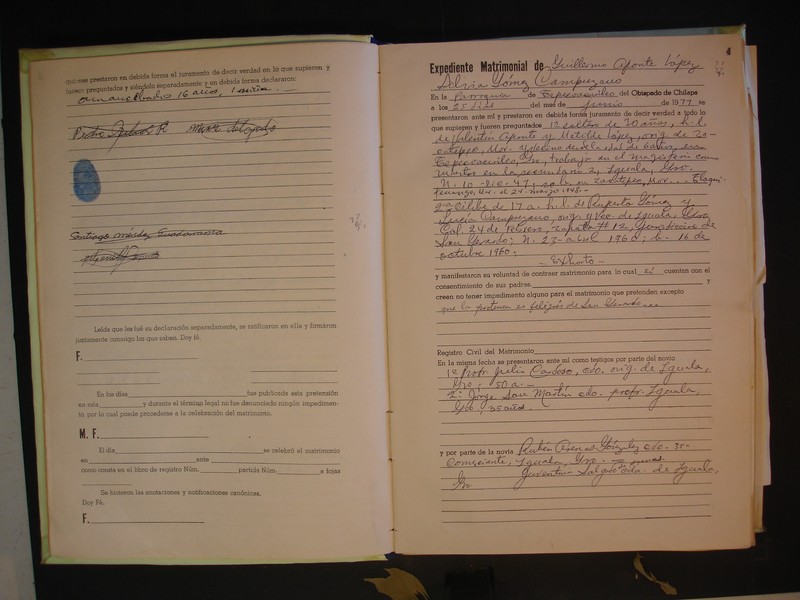 que se prestaron en debida forma el juramento de decir verdad en lo que supieren y
fueren preguntados y siéndole separadamente y en debida forma declararon:
16 años,
Pedro
Santiago Méndez Guadarrama
Leída que les fué su declaración separadamente, se ratificaron en ella y firmaron
juntamente conmigo los que saben. Doy fé.
F.
En los días fue publicada esta pretensión
en esta y durante el término legal no fue denunciado ningún impedimen-
to por lo cual puede procederse a la celebración del matrimonio.
M. F.
El día se celebró el matrimonio
en ante
como consta en el libro de registro Núm. partida Núm. a fojas
Se hicieron las anotaciones y notificaciones canónicas.
Doy Fé.
F.
4
Expediente Matrimonial de Guillermo Aponte López
Silvia Gómez Campuzano
En la Parroquia de Tepecoacuilco del Obispado de Chilapa
a los 25 días del mes de junio de 1977 se
presentaron ante mí y prestaron en debida forma juramento de decir verdad a todo lo
que supieren y fueren preguntados 1º soltero de 30 años, h.l.
de Valentín Aponte y Matilde López, orig. de Za-
catepec, Mor. y vecino desde la edad de 6 años, en
Tepecoacuilco, Gro, trabaja en el magisterio como
maestro en la secundaria 2, Iguala, Gro.
N. 10-47, en Zacatepec, Mor.
el 24 marzo 1948.-
2ª Célibe de 17 a. h.l. de Ruperto Gómez y
Lucía Campuzano, orig. y vec. de Iguala, Gro,
Col. 24 de Febrero, Zapata # 12, jurisdicción de
San Gerardo; N. 23-abril 1960; b. 16 de
octubre 1960.-
- Exhorto -
y manifestaron su voluntad de contraer matrimonio para lo cual si cuentan con el
consentimiento de sus padres. y
creen no tener impedimento alguno para el matrimonio que pretenden excepto
que la pretensa es feligrés de San Gerardo...
Registro Civil del Matrimonio
En la misma fecha se presentaron ante mí como testigos por parte del novio
1º Profr. Julio Cardoso, cdo. orig. de Iguala,
Gro; 50 a.-
2º Jorge San Martín cdo. profr. Iguala,
Gro., 35 años.
y por parte de la novia Rubén González cdo - 35 -
Comerciante, Iguala, Gro.
Gro Juventina Salgado cda. de Iguala,